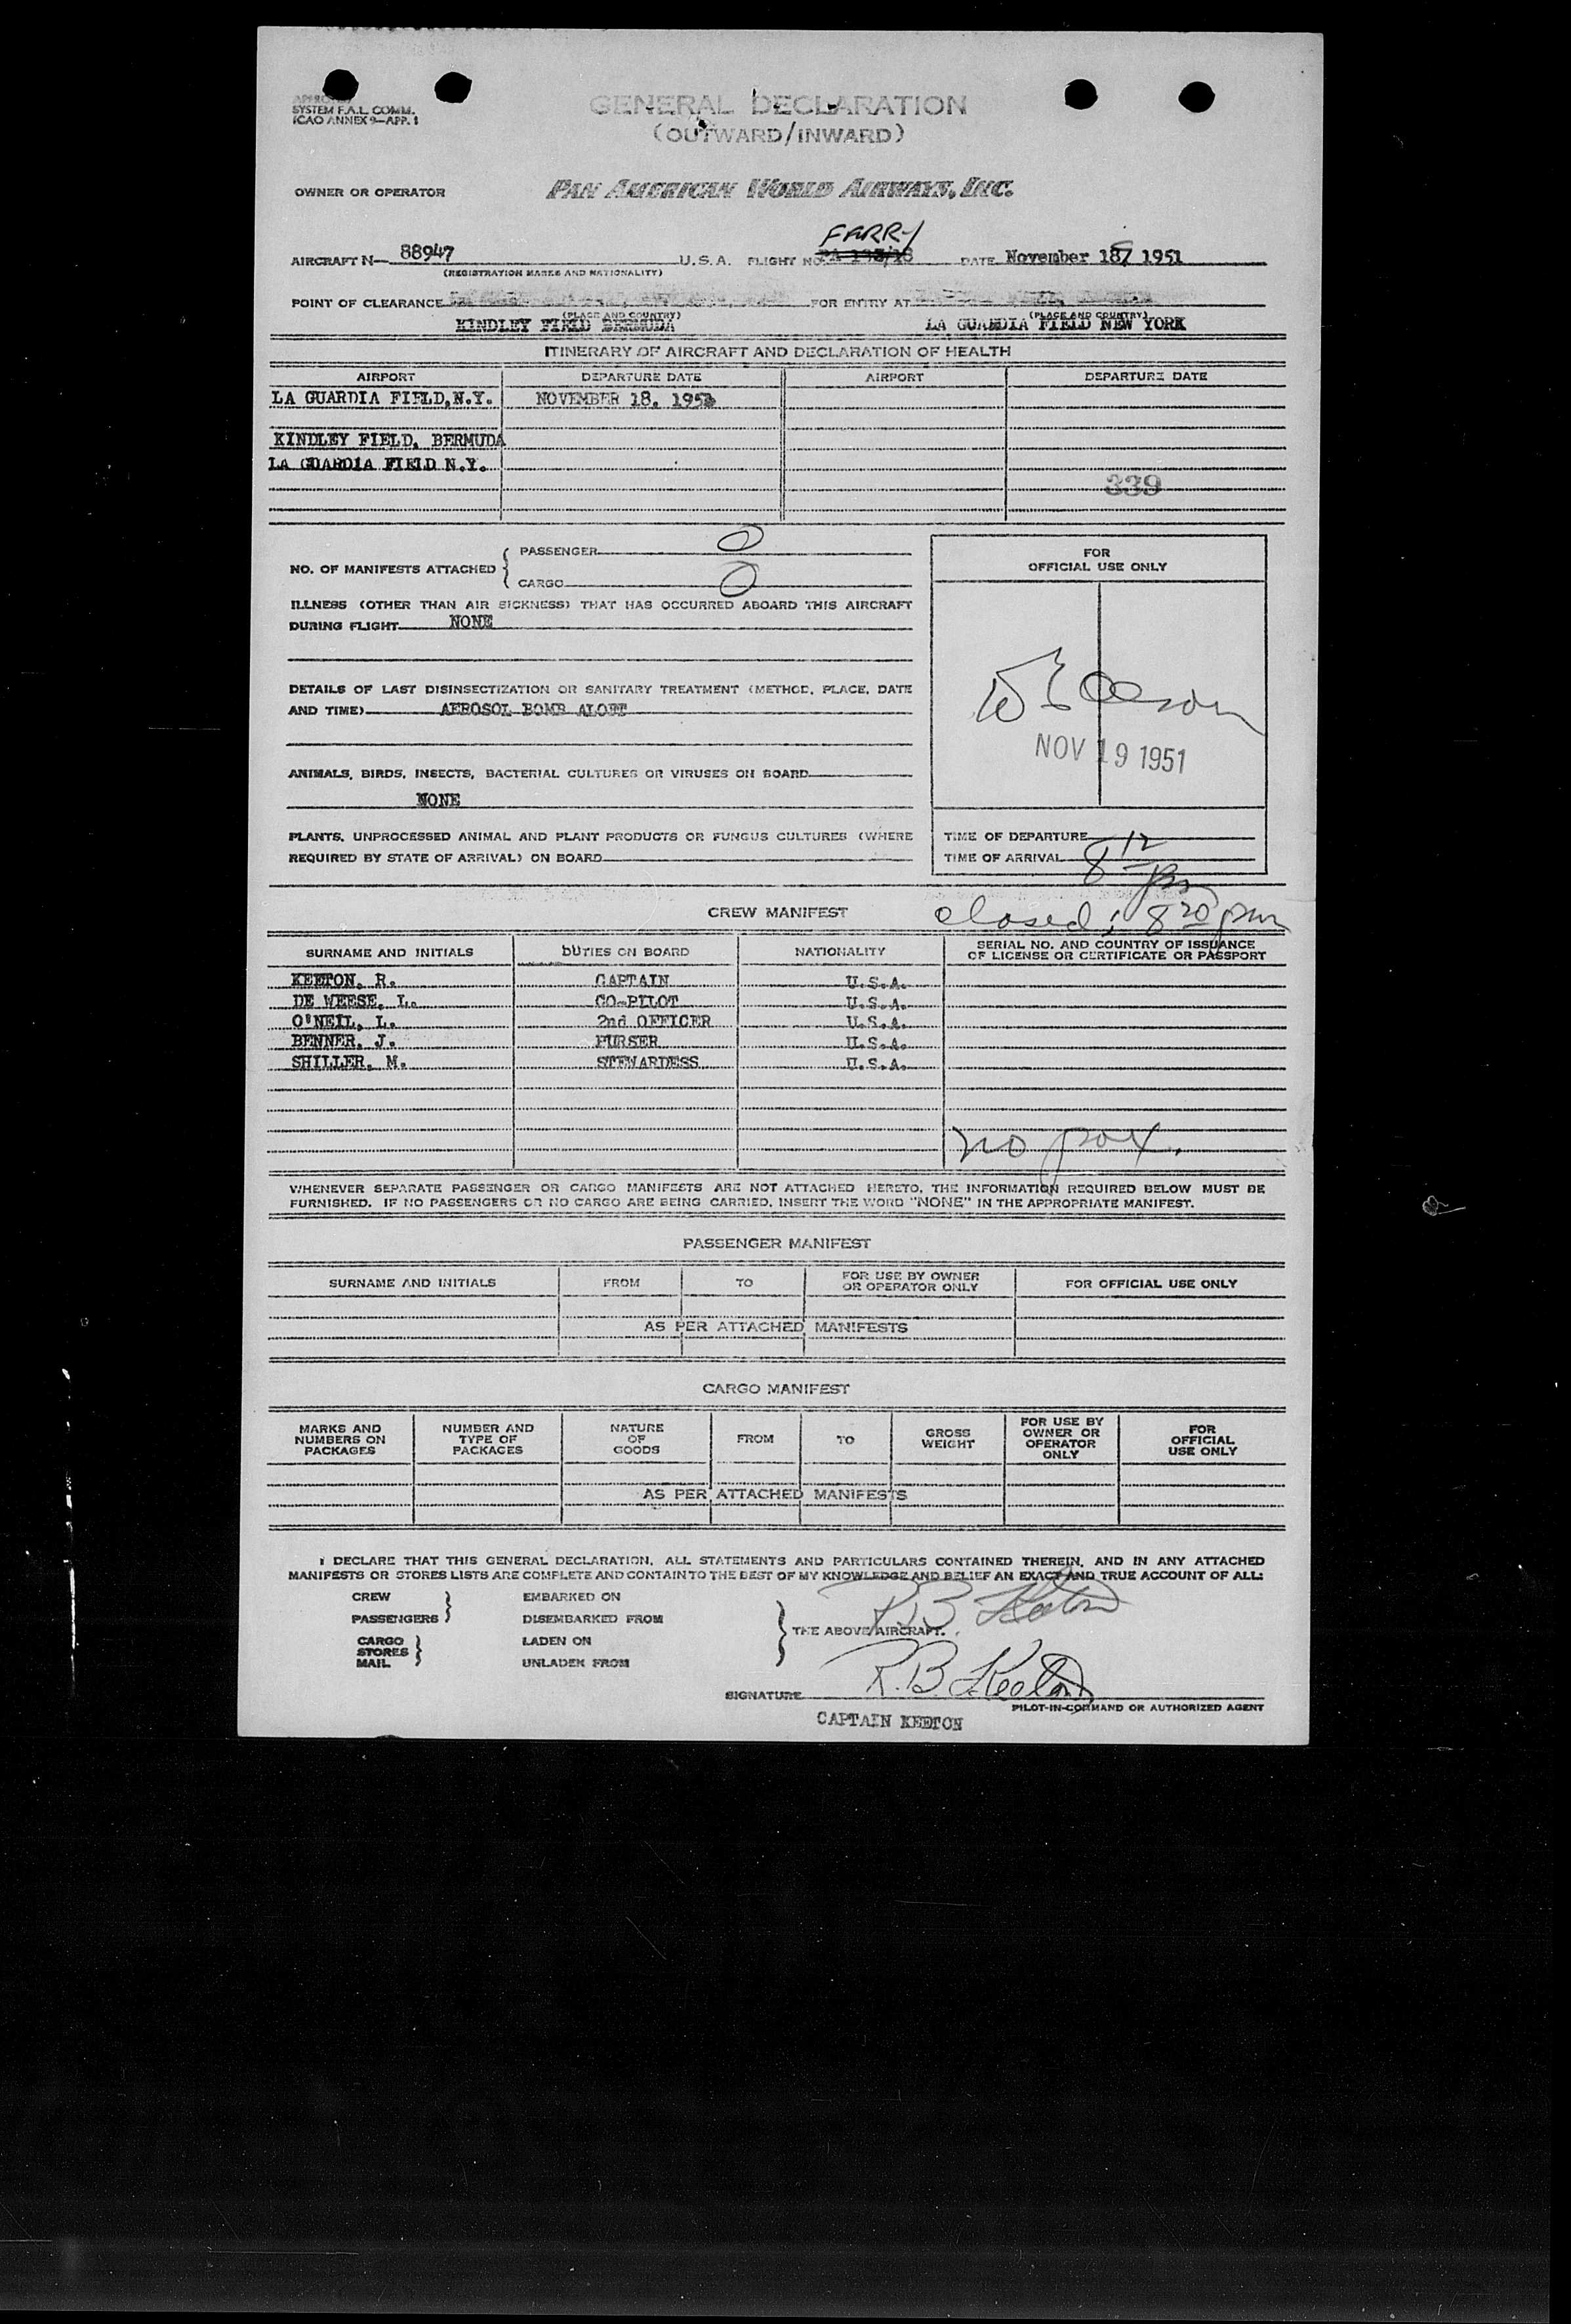 APPROVED
SYSTEM F.A.L. COMM.
ICAO ANNEX 9—APP. 1
GENERAL DECLARATION
(OUTWARD/INWARD)
OWNER OR OPERATOR PAN AMERICAN WORLD AIRWAYS, INC.
FERRY
AIRCRAFT N— 88947 U.S.A. FLIGHT NO. DATE November 18, 1951
(REGISTRATION MARKS AND NATIONALITY)
POINT OF CLEARANCE FOR ENTRY AT
(PLACE AND COUNTRY) (PLACE AND COUNTRY)
KINDLEY FIELD BERMUDA LA GUARDIA FIELD NEW YORK
ITINERARY OF AIRCRAFT AND DECLARATION OF HEALTH
AIRPORT DEPARTURE DATE AIRPORT DEPARTURE DATE
LA GUARDIA FIELD, N.Y. NOVEMBER 18, 1951
KINDLEY FIELD, BERMUDA
LA GUARDIA FIELD N.Y.
339
NO. OF MANIFESTS ATTACHED
PASSENGER 0
CARGO 0
ILLNESS (OTHER THAN AIR SICKNESS) THAT HAS OCCURRED ABOARD THIS AIRCRAFT
DURING FLIGHT NONE
DETAILS OF LAST DISINSECTIZATION OR SANITARY TREATMENT (METHOD, PLACE, DATE
AND TIME) AEROSOL BOMB ALOFT
ANIMALS, BIRDS, INSECTS, BACTERIAL CULTURES OR VIRUSES ON BOARD
NONE
PLANTS, UNPROCESSED ANIMAL AND PLANT PRODUCTS OR FUNGUS CULTURES (WHERE
REQUIRED BY STATE OF ARRIVAL) ON BOARD
FOR
OFFICIAL USE ONLY
NOV 19 1951
TIME OF DEPARTURE
TIME OF ARRIVAL 8 12 pm
closed; 8 20 pm
CREW MANIFEST
SURNAME AND INITIALS DUTIES ON BOARD NATIONALITY SERIAL NO. AND COUNTRY OF ISSUANCE
OF LICENSE OR CERTIFICATE OR PASSPORT
KEETON, R. CAPTAIN U.S.A.
DE WEESE, L. CO-PILOT U.S.A.
O'NEIL, L. 2nd OFFICER U.S.A.
BENNER, J. PURSER U.S.A.
SHILLER, M. STEWARDESS U.S.A.
no pax.
WHENEVER SEPARATE PASSENGER OR CARGO MANIFESTS ARE NOT ATTACHED HERETO, THE INFORMATION REQUIRED BELOW MUST BE
FURNISHED. IF NO PASSENGERS OR NO CARGO ARE BEING CARRIED, INSERT THE WORD "NONE" IN THE APPROPRIATE MANIFEST.
PASSENGER MANIFEST
SURNAME AND INITIALS FROM TO FOR USE BY OWNER
OR OPERATOR ONLY FOR OFFICIAL USE ONLY
AS PER ATTACHED MANIFESTS
CARGO MANIFEST
MARKS AND
NUMBERS ON
PACKAGES
NUMBER AND
TYPE OF
PACKAGES
NATURE
OF
GOODS
FROM
TO
GROSS
WEIGHT
FOR USE BY
OWNER OR
OPERATOR
ONLY
FOR
OFFICIAL
USE ONLY
AS PER ATTACHED MANIFESTS
I DECLARE THAT THIS GENERAL DECLARATION, ALL STATEMENTS AND PARTICULARS CONTAINED THEREIN, AND IN ANY ATTACHED
MANIFESTS OR STORES LISTS ARE COMPLETE AND CONTAIN TO THE BEST OF MY KNOWLEDGE AND BELIEF AN EXACT AND TRUE ACCOUNT OF ALL:
CREW EMBARKED ON
PASSENGERS DISEMBARKED FROM
CARGO LADEN ON
STORES
MAIL UNLADEN FROM
THE ABOVE AIRCRAFT.
R B Keeton
SIGNATURE R.B. Keeton
PILOT-IN-COMMAND OR AUTHORIZED AGENT
CAPTAIN KEETON